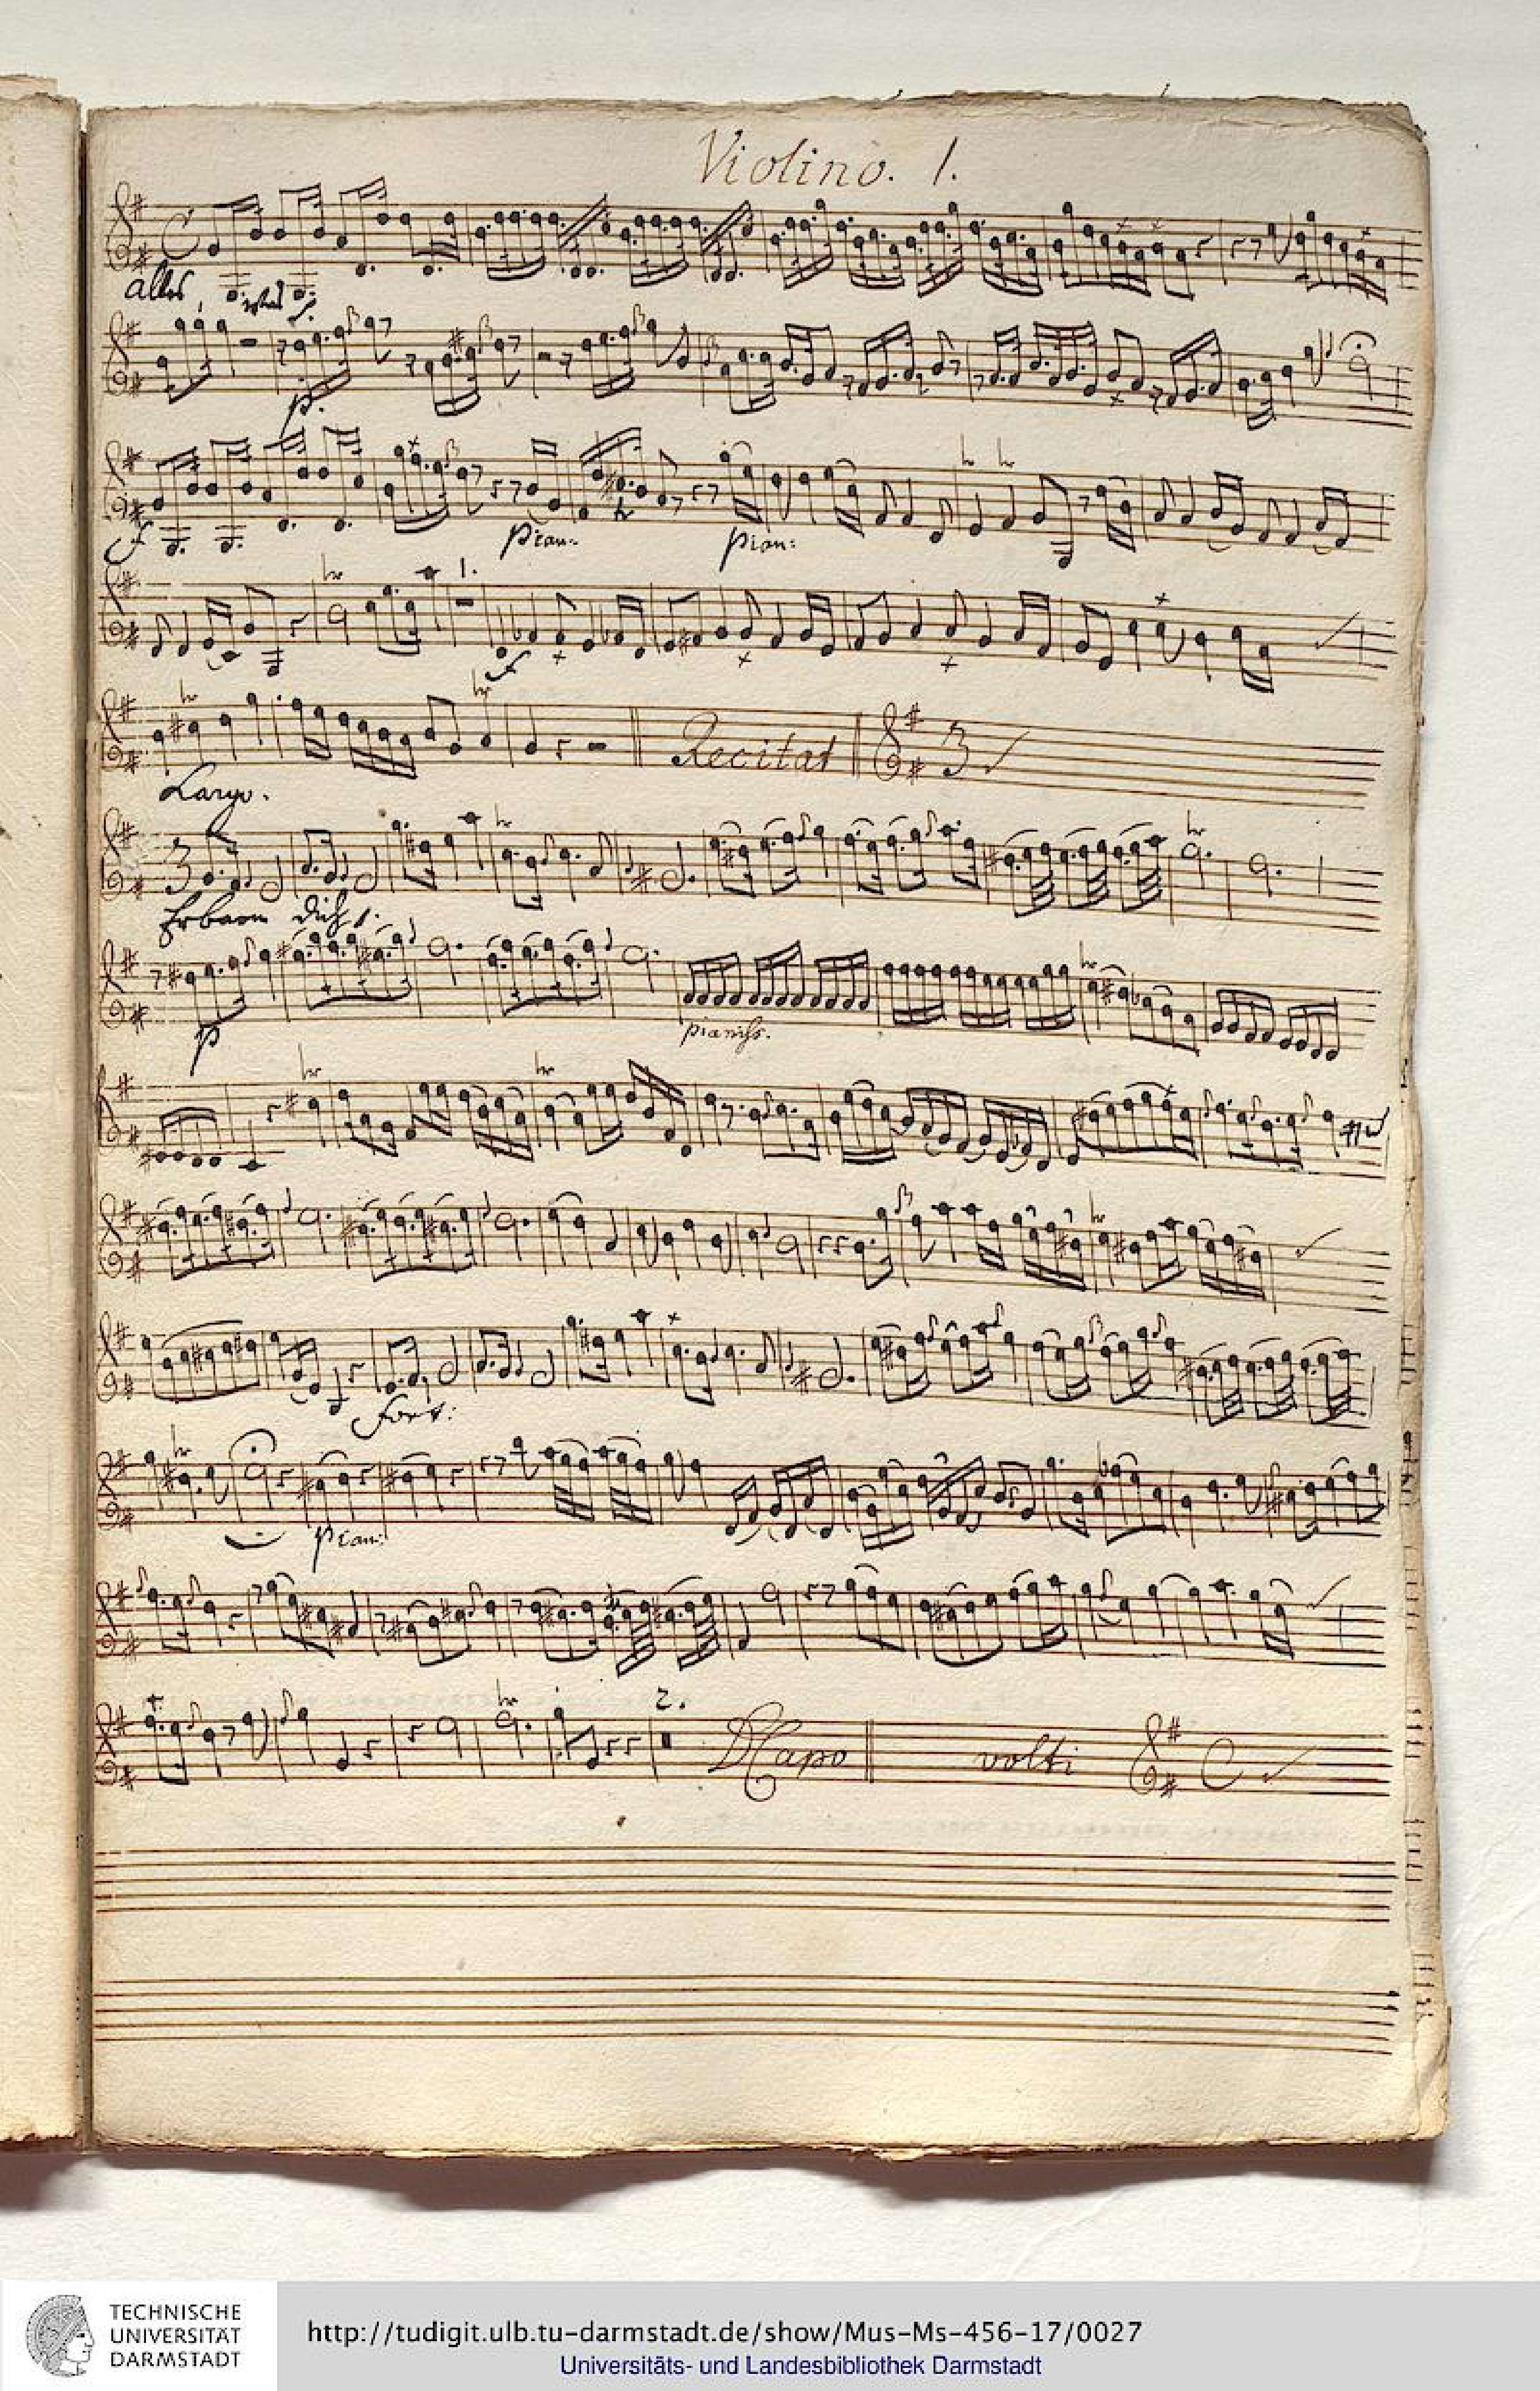 Violino. 1.
alles
p.
f
pian:
pian:
1.
f
Recitat
3
Largo.
3
Erbarm dich
p
pianiss.
fort:
pian:
2.
DCapo
volti
TECHNISCHE
UNIVERSITÄT
DARMSTADT
http://tudigit.ulb.tu-darmstadt.de/show/Mus-Ms-456-17/0027
Universitäts- und Landesbibliothek Darmstadt